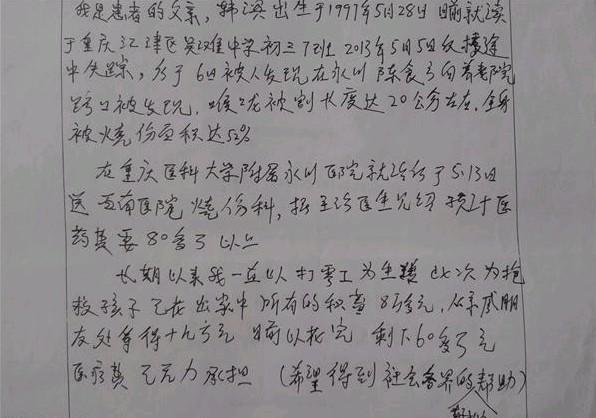 我是患者的父亲，韩滨出生于1997年5月28日 目前就读
于重庆江津区吴滩中学初三7班 2013年5月5日 途
中失踪，于6日被人发现在永川陈食 向养老院
路口被发现，喉咙被割长度达20公分左右，全身
被烧伤面积达52%
在重庆医科大学附属永川医院就诊 于5.13日
送西南医院烧伤科，据主诊医生介绍 预计医
药费要80多万以上
长期以来我一直以打零工为生 此次为抢
救孩子已花出家中所有的积蓄8万多元，从亲戚朋
友处筹得十九万元 目前以花完 剩下60多万元
医疗费 已无力承担 （希望得到社会各界的帮助）